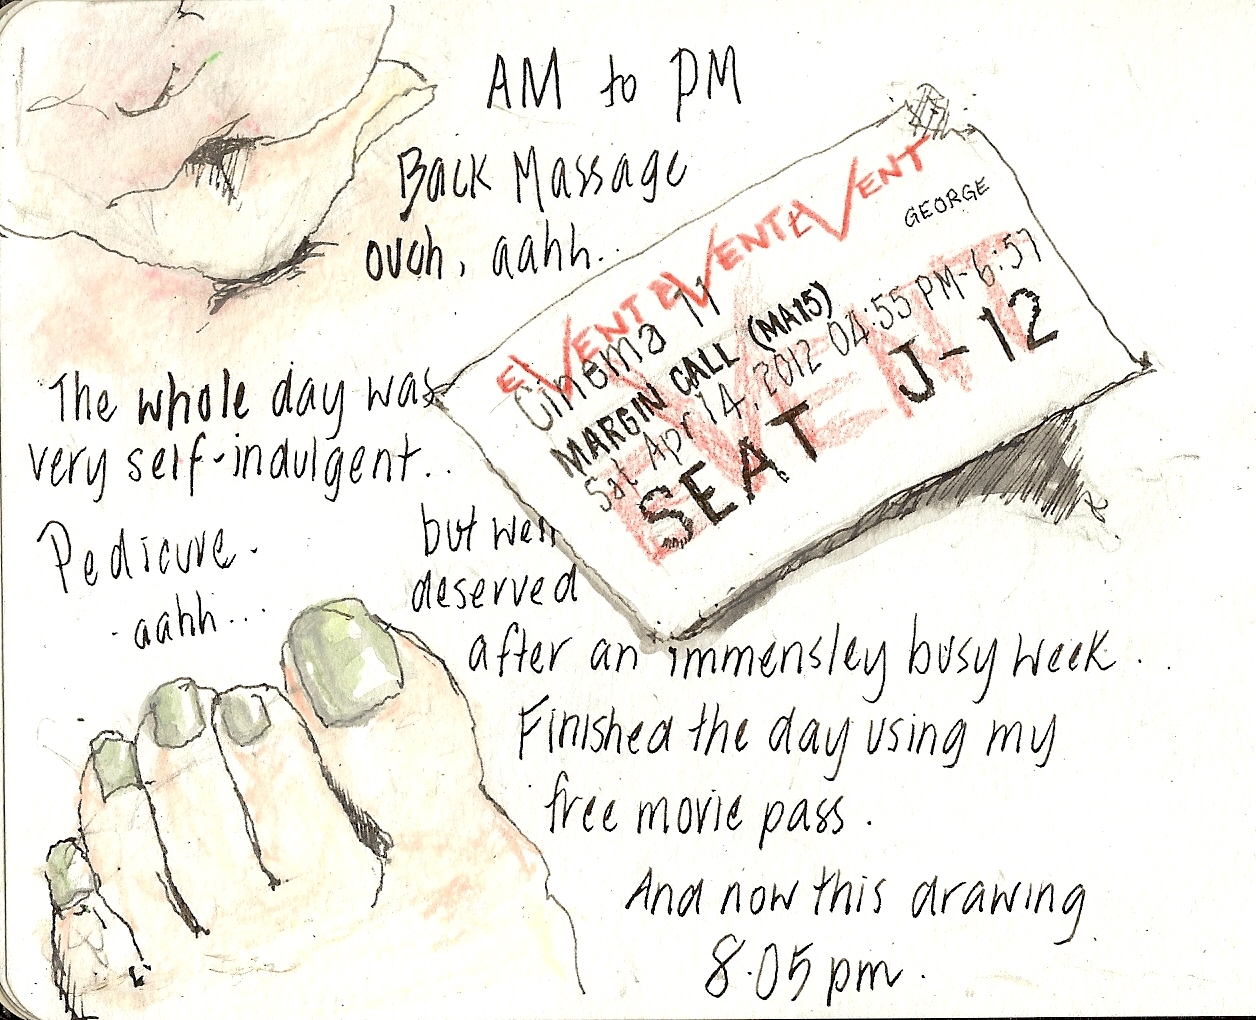 AM to PM
Back Massage
ouch, aahh..
EVENT EVENT EVENT
GEORGE
Cinema 11
MARGIN CALL (MA15)
Sat Apr 14, 2012 04:55 PM-6:57
SEAT J-12
EVENT
The whole day was
very self-indulgent..
Pedicure.
.aahh...
but well
deserved
after an immensley busy week...
Finished the day using my
free movie pass.
And now this drawing
8.05pm.